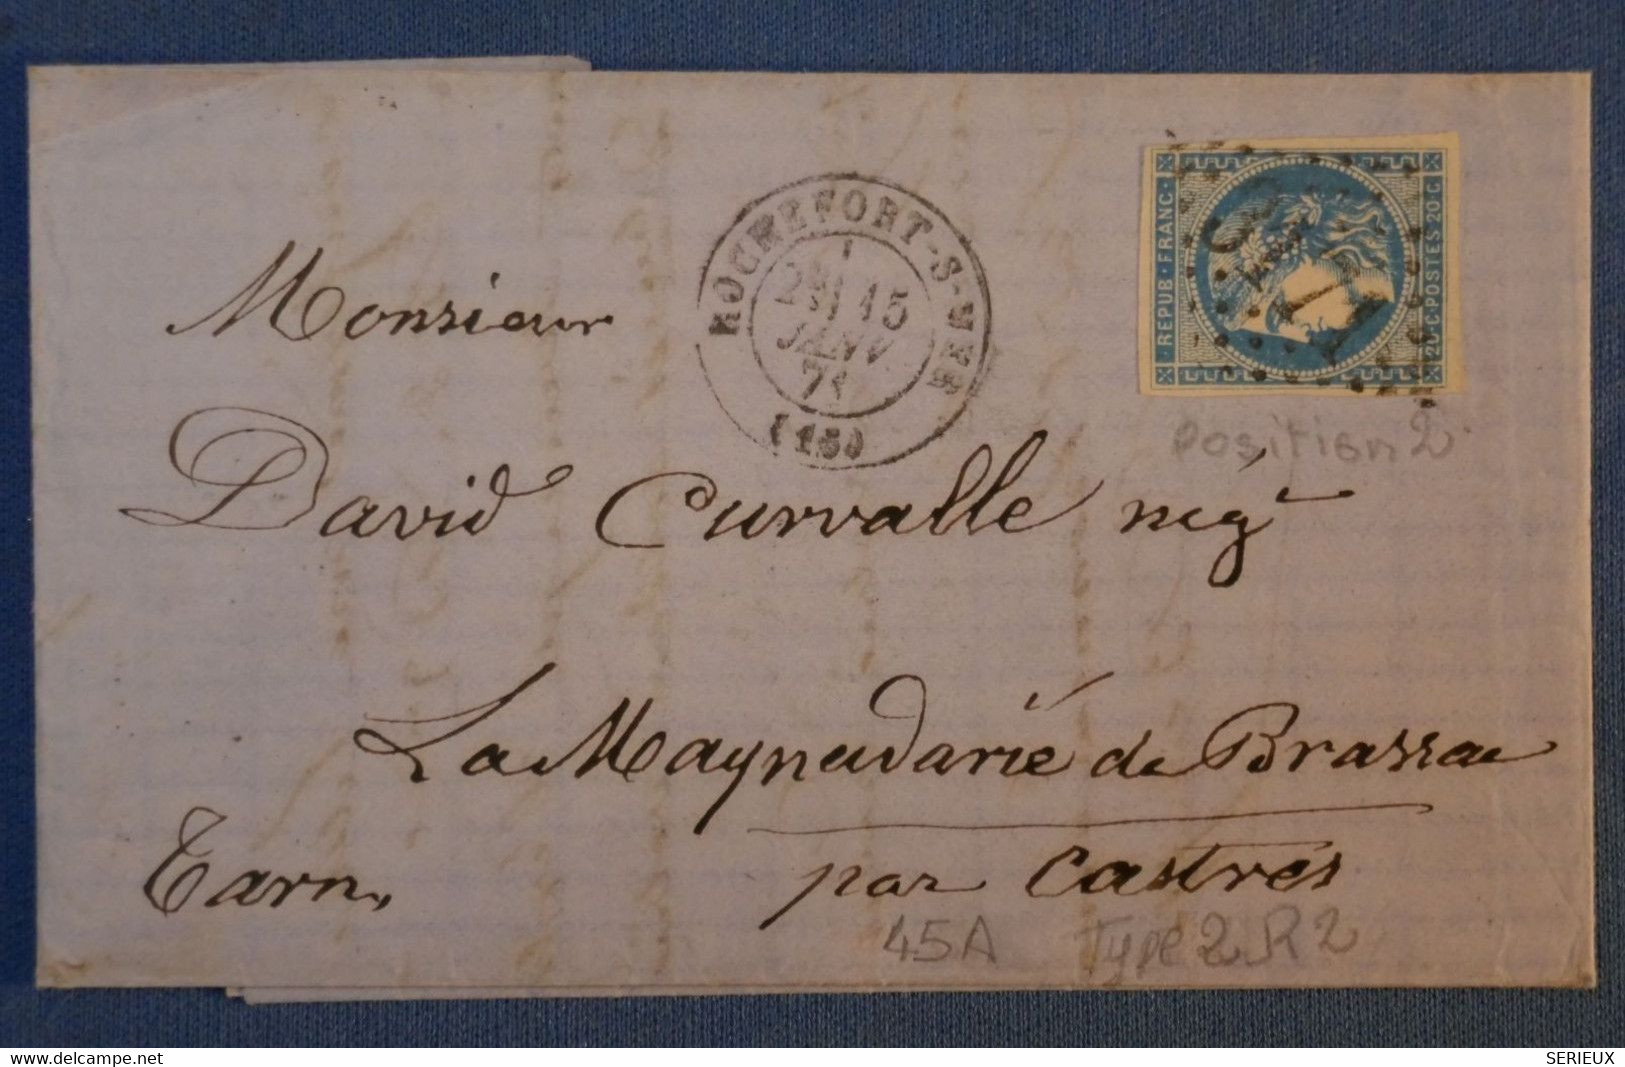 ROCHEFORT-S-MER
2E 15
JANV
71
(16)
REPUB. FRANC.
20. C. POSTES 20. C.
position 2
Monsieur
David Curvalle nég.t
La Maynadarié de Brassac
par Castres
Tarn,
45A Type 2 R2
https://www.delcampe.net
SERIEUX